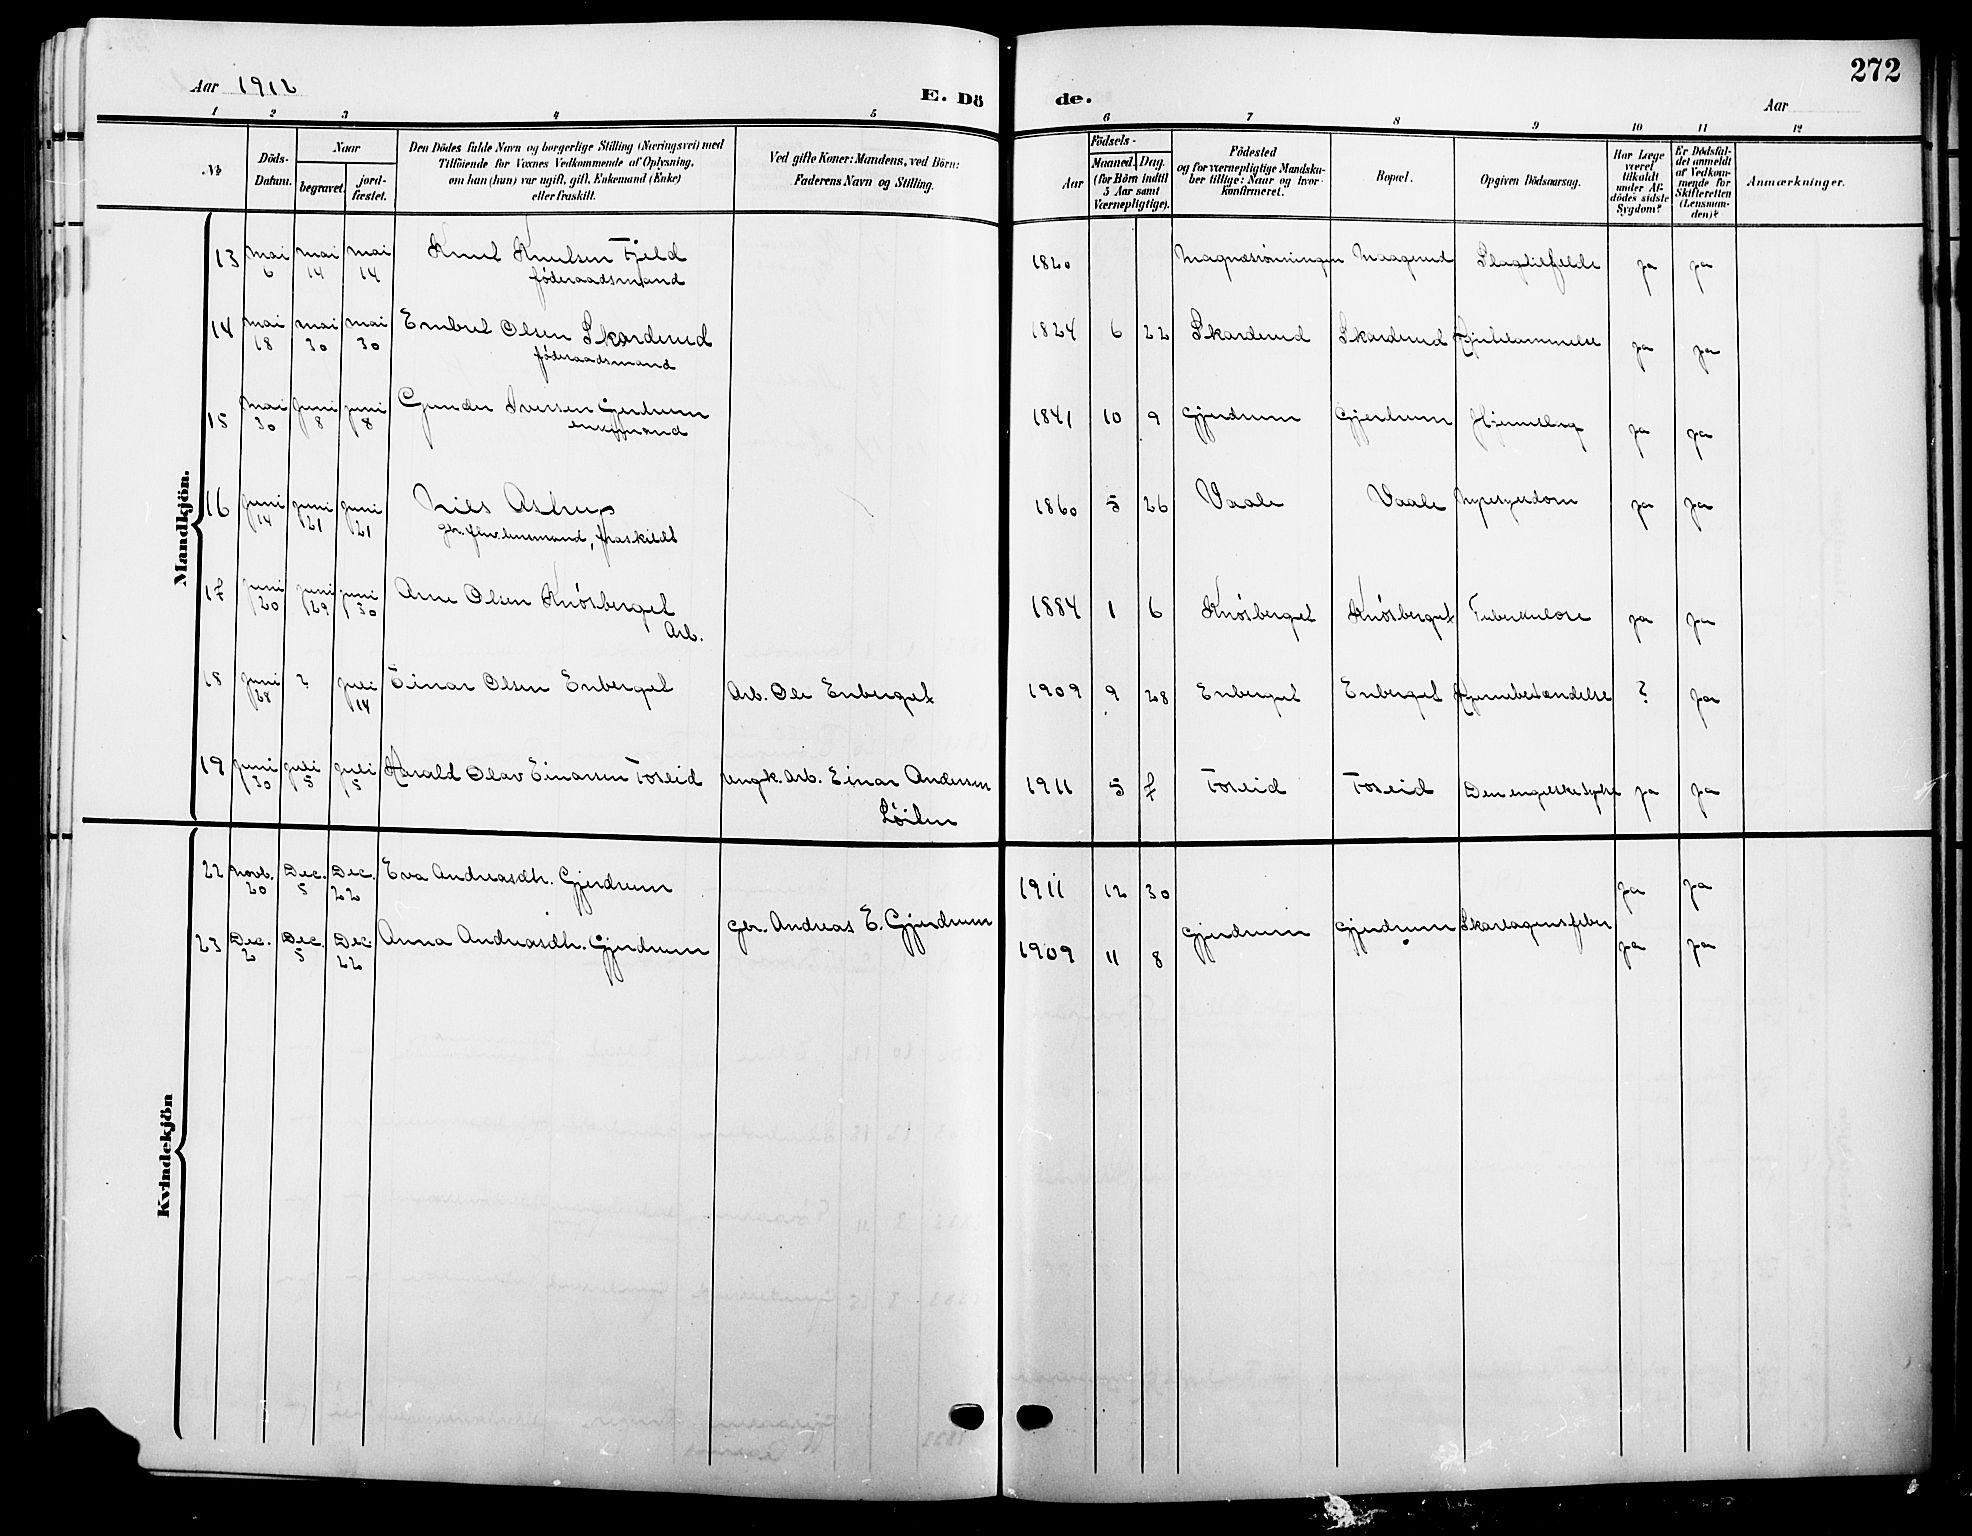 272
Aar 1912
E. Dö
de.
Aar
1 2 3 4 5 6 7 8 9 10 11 12
№
Döds-
Datum.
Naar
begravet.
jord-
fæstet.
Den Dödes fulde Navn og borgerlige Stilling (Næringsvei) med
Tilföiende for Voxnes Vedkommende af Oplysning,
om han (hun) var ugift, gift, Enkemand (Enke)
eller fraskilt.
Ved gifte Koner: Mandens, ved Börn:
Faderens Navn og Stilling.
Födsels-
Aar
Maaned. Dag.
(for Börn indtil
5 Aar samt
Værnepligtige).
Födested
og for værnepligtige Mandska-
ber tillige: Naar og hvor
Konfirmeret.
Bopæl.
Opgiven Dödsaarsag.
Har Læge
været
tilkaldt
under Af-
dödes sidste
Sygdom?
Er Dödsfal-
det anmeldt
af Vedkom-
mende for
Skifteretten
(Lensman-
den)?
Anmærkninger.
Mandkjön.
13 Mai 6 Mai 14 Mai 14 Knut Knutsen Fjeld 1820 Maagerud Slagtilfelde ja ja
føderaadsmand
14 Mai 18 Mai 30 Mai 30 Embret Olsen Skarderud 1824 6 22 Skarderud Skarderud Hjertelammelse ja ja
føderaadsmand
15 Mai 30 Juni 8 Juni 8 Gunder Iversen Gjerdrum 1841 10 9 Gjerdrum Gjerdrum Hjerneslag ja ja
enkemand
16 Juni 14 Juni 21 Juni 21 Nils Astrup 1860 5 26 Vaale Vaale Nyresygdom ja ja
fraskildt
17 Juni 20 Juni 29 Juni 30 Arne Olsen Knósberget 1884 1 6 Knósberget Knósberget Tuberkulose ja ja
Arb.
18 Juni 28 ? Juli 14 Einar Olsen Enberget Arb. Ole Enberget 1909 9 28 Enberget Enberget Hjernebetændelse ? ja
19 Juni 30 Juli 5 Juli 5 Harald Olav Einarsen Foseid ungk. Arb. Einar Andersen 1911 5 7 Foseid Foseid Den engelske syke ja ja
Løiten
Kvindekjön
22 Novb. 20 Dec. 5 Dec. 22 Eva Andreasdh. Gjerdrum 1911 12 30 ja ja
gbr. Andreas E. Gjerdrum Gjerdrum Gjerdrum Skarlagensfeber
23 Dec. 2 Dec. 5 Dec. 22 Anna Andreasdh. Gjerdrum 1909 11 8 ja ja